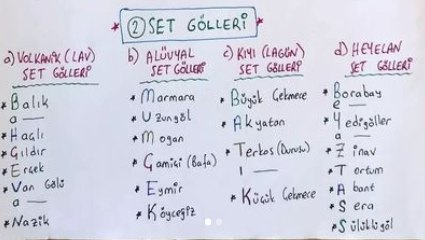 ② SET GÖLLERİ
a) VOLKANİK (LAV) SET GÖLLERİ
* Balık
a —
* Haçlı
* Gıldır
* Erçek
* Van Gölü
a —
* Nazik
b) ALÜVYAL SET GÖLLERİ
* Marmara
* Uzungöl
* Mogan
* Gamiçi (Bafa)
* Eymir
* Köyceğiz
c) KIYI (LAGÜN) SET GÖLLERİ
* Büyük Çekmece
* Akyatan
* Terkos (Durusu)
ı —
* Küçük Çekmece
d) HEYELAN SET GÖLLERİ
* Borabay
e —
* Yedigöller
a —
* Zinav
* Tortum
* Abant
* Sera
* Sülüklügöl